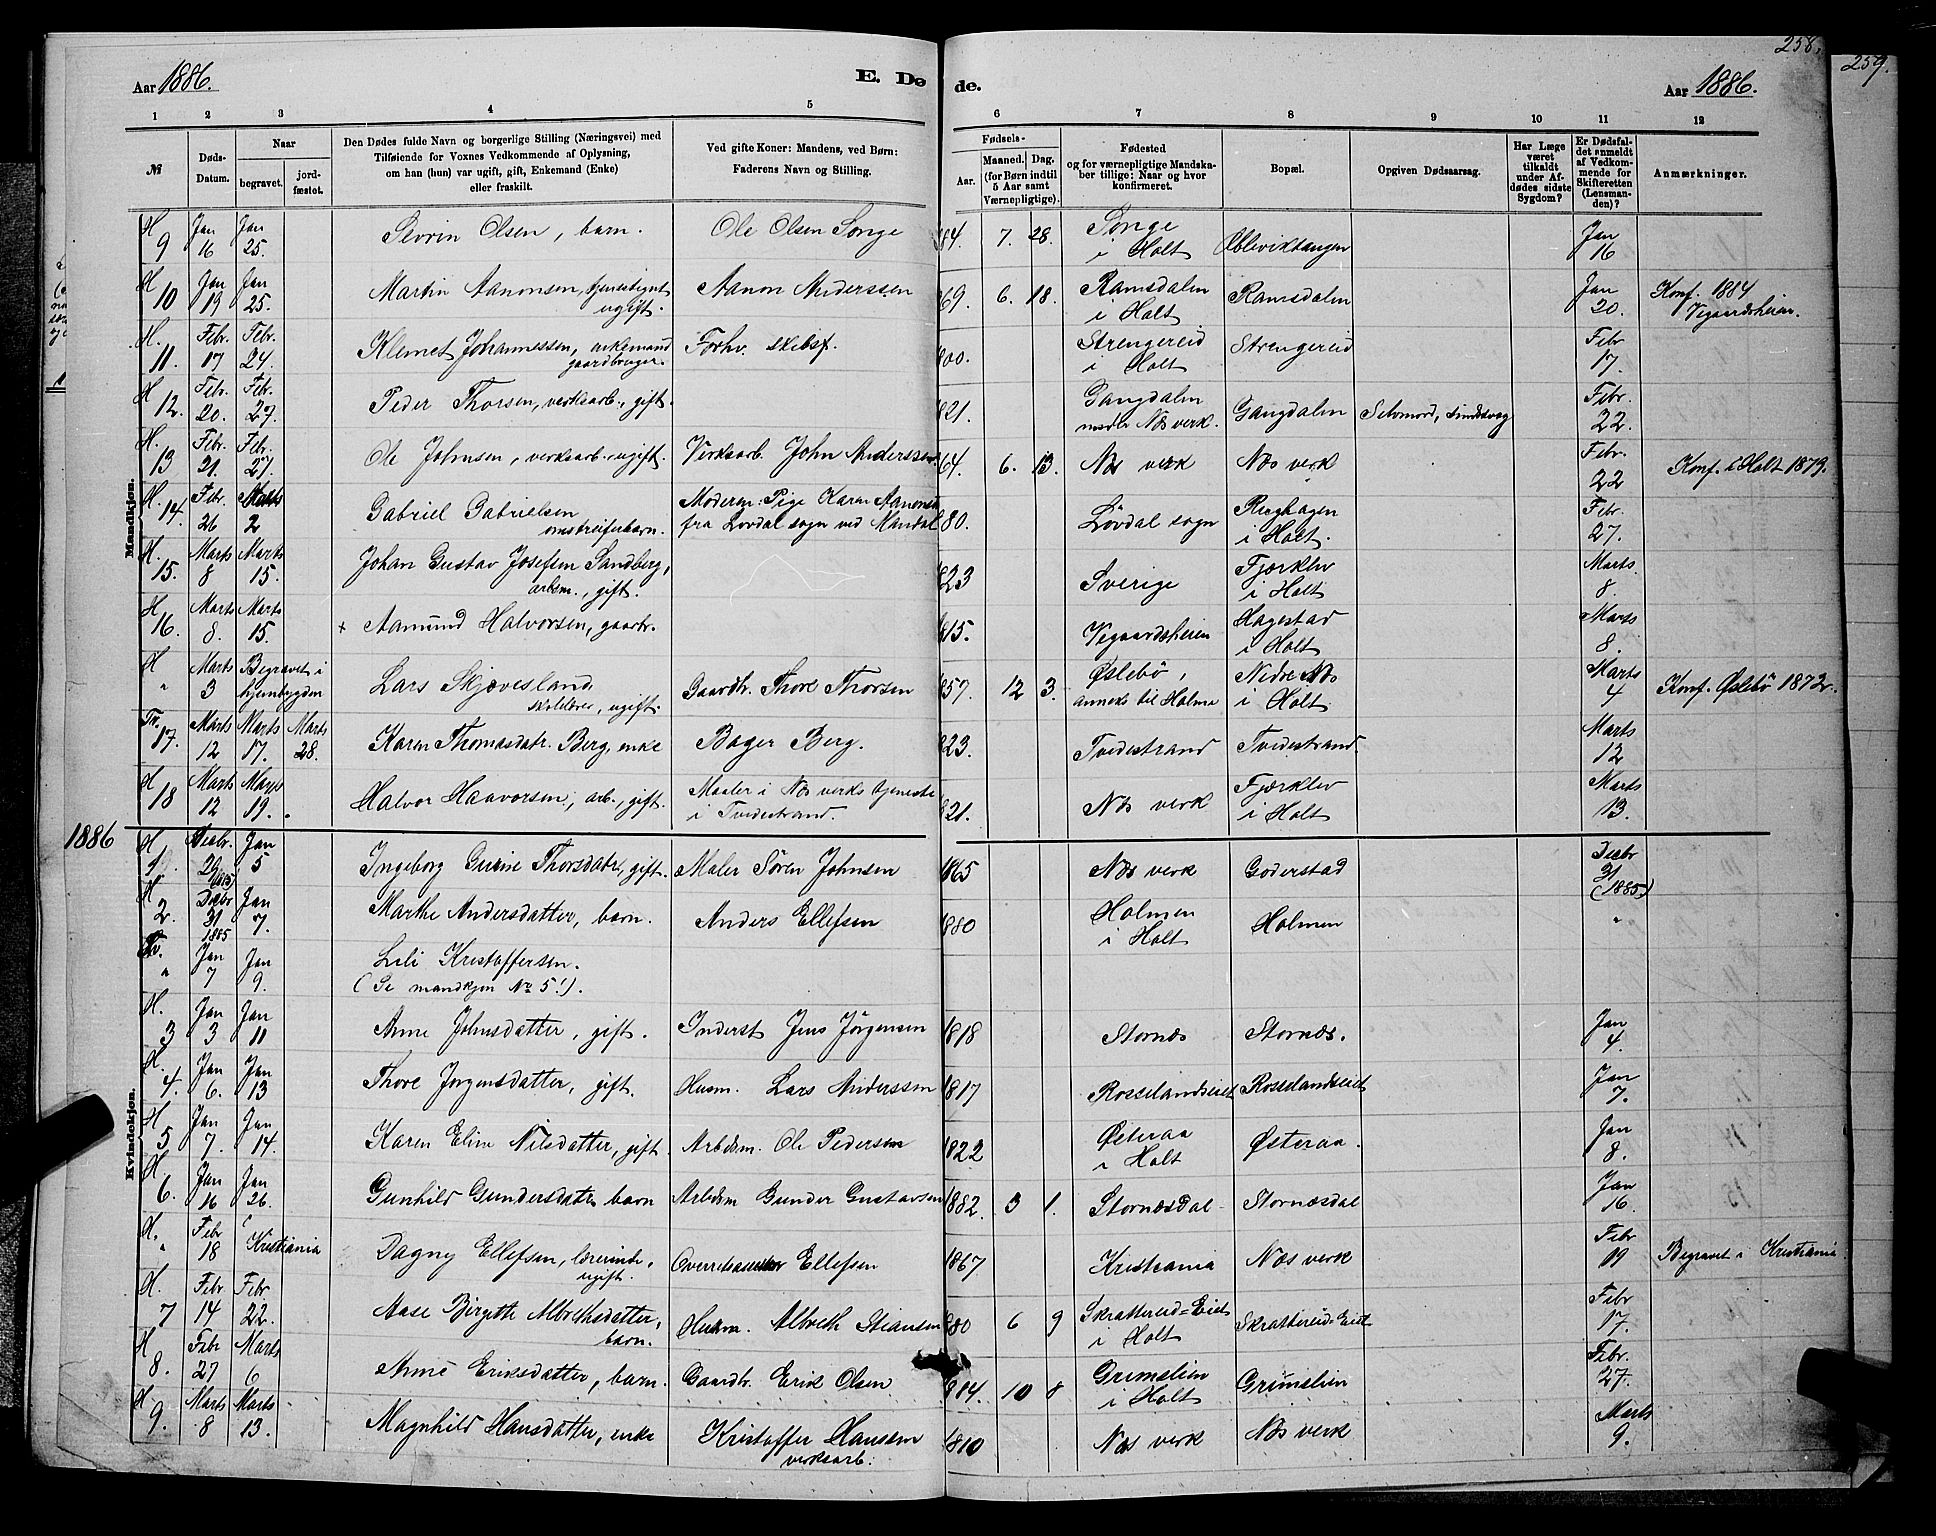 258.
259.
Aar 1886.
E. Dø
de.
Aar 1886.
1 2 3 4 5 6 7 8 9 10 11 12
№
Døds-Datum.
Naar
begravet.
jord-fæstet.
Den Dødes fulde Navn og borgerlige Stilling (Næringsvei) med
Tilføiende for Voxnes Vedkommende af Oplysning,
om han (hun) var ugift, gift, Enkemand (Enke)
eller fraskilt.
Ved gifte Koner: Mandens, ved Børn:
Faderens Navn og Stilling.
Fødsels-
Aar.
Maaned. Dag.
(for Børn indtil
5 Aar samt
Værnepligtige).
Fødested
og for værnepligtige Mandska-
ber tillige: Naar og hvor
konfirmeret.
Bopæl.
Opgiven Dødsaarsag.
Har Læge
været
tilkaldt
under Af-
dødes sidste
Sygdom?
Er Dødsfal-
det anmeldt
af Vedkom-
mende for
Skifteretten
(Lensman-
den)?
Anmærkninger.
Mandkjøn.
H 9 Jan 16 Jan 25. Sevrin Olsen, barn. Ole Olsen Songe 84. 7. 28. Songe i Holt Ableviktangen Jan 16
H 10 Jan 19 Jan 25. Martin Aanonsen, tjenestegut ugift. Aanon Anderssen 69. 6. 18. Ramsdalen i Holt Ramsdalen Jan 20. Konf. 1884 Vegaardsheien.
H. 11. Febr. 17 Febr. 24. Klemet Johannessen, enkemand gaardbruger. Forhv. skibsf. 800. Strengereid i Holt Strengereid Febr 17.
H 12. Febr. 20. Febr. 27. Peder Thorsen, verksarb., gift. 821. Gangdalen nedre Næs verk. Gangdalen Selvmord, sindssvag Febr. 22.
H. 13 Febr. 21. Febr. 27. Ole Johnsen, verksarb., ugift. Verksarb. John Anderssen 64. 6. 13. Næs verk Næs verk Febr. 22 Konf. i Holt 1879.
H. 14. Febr. 26 Marts 2 Gabriel Gabrielsen omstreiferbarn. Moderen: Pige Karen Aanonsd. fra Lovdal sogn ved Mandal 80. Lövdal sogn Ringhagen i Holt. Febr. 27.
H. 15. Marts 8 Marts 15. Johan Gustav Josefsen Sandberg, arbem., gift. 823 Sverige Fjærklev i Holt Marts. 8.
H 16. Marts 8. Marts 15. + Aamund Halvorsen, gaarbr. 815. Vegaardsheien Hagestad i Holt Marts 8.
H " Marts 3 Begravet i hjembygden Lars Skjævesland skolelærer, ugift. Gaardbr. Thore Thorsen 857. 12 3. Øslebö, anneks til Holme Nedre Næs i Holt Marts 4 Konf. Øslebö 1872.
Tv. 17. Marts 12 Marts 17. Marts 28. Karen Thomasdatr. Berg, enke Bager Berg. 823. Tvedestrand Tvedestrand Marts 12
H 18 Marts 12 Marts 19. Halvor Haavorsen, arb., gift. Maaler i Næs verks tjeneste i Tvedestrand. 821. Næs verk Fjærklev i Holt Marts 13.
1886
Kvindekjøn.
H. 1. Desbr. 29 1885 Jan 5 Ingeborg Gurine Thorsdatter, gift. Maler Sören Johnsen 1865 Næs verk Goderstad Desbr 31 (1885)
H 2. Desbr 31 1885 Jan 7. Marthe Andersdatter, barn. Anders Ellefsen 1880 Holmen i Holt Holmen "
Tv. " Jan 7 Jan 9. Lili Kristoffersen. (Se mandkjøn No 5!).
H. 3 Jan 3 Jan 11 Anne Johnsdatter, gift. Inderst Jens Jörgensen 1818 Stornæs Stornæs. Jan 4.
H. 4. Jan 6. Jan 13 Thore Jorgensdatter, gift. Husm. Lars Anderssen 1817 Rosselandseiet Rosselandseiet Jan 7.
H 5 Jan 7. Jan 14. Karen Eline Nilsdatter, gift. Arbdsm. Ole Pedersen 1822 Østeraa i Holt Østeraa. Jan 8.
H. 6. Jan 16 Jan 26. Gunhild Gundersdatter, barn Arbdsm Gunder Gustavsen 1882. 3 1. Stornæsdal Stornæsdal Jan 16.
H. " Febr 18 i Kristiania Dagny Ellefsen, lærerinde, ugift. Overretssaksører Ellefsen 1867 Kristiania Næs verk Febr 19 Begravet i Kristiania
H. 7 Febr 14 Febr 22. Aase Birgitte Albrethsdatter, barn. Husm. Albreth Stiansen 880 6 9 Skrattereid-Eiet i Holt Skrattereid-Eiet Febr 17.
H 8. Febr 27 Marts 6 Anne Eriksdatter, barn. Gaardbr. Erik Olsen 1884. 10 8 Grimslien i Holt Grimslien Febr. 27.
H 9. Marts 8 Marts 13. Magnhild Hansdatter, enke Kristoffer Hanssen verksarb. 1810 Næs verk Næs verk Marts 9.